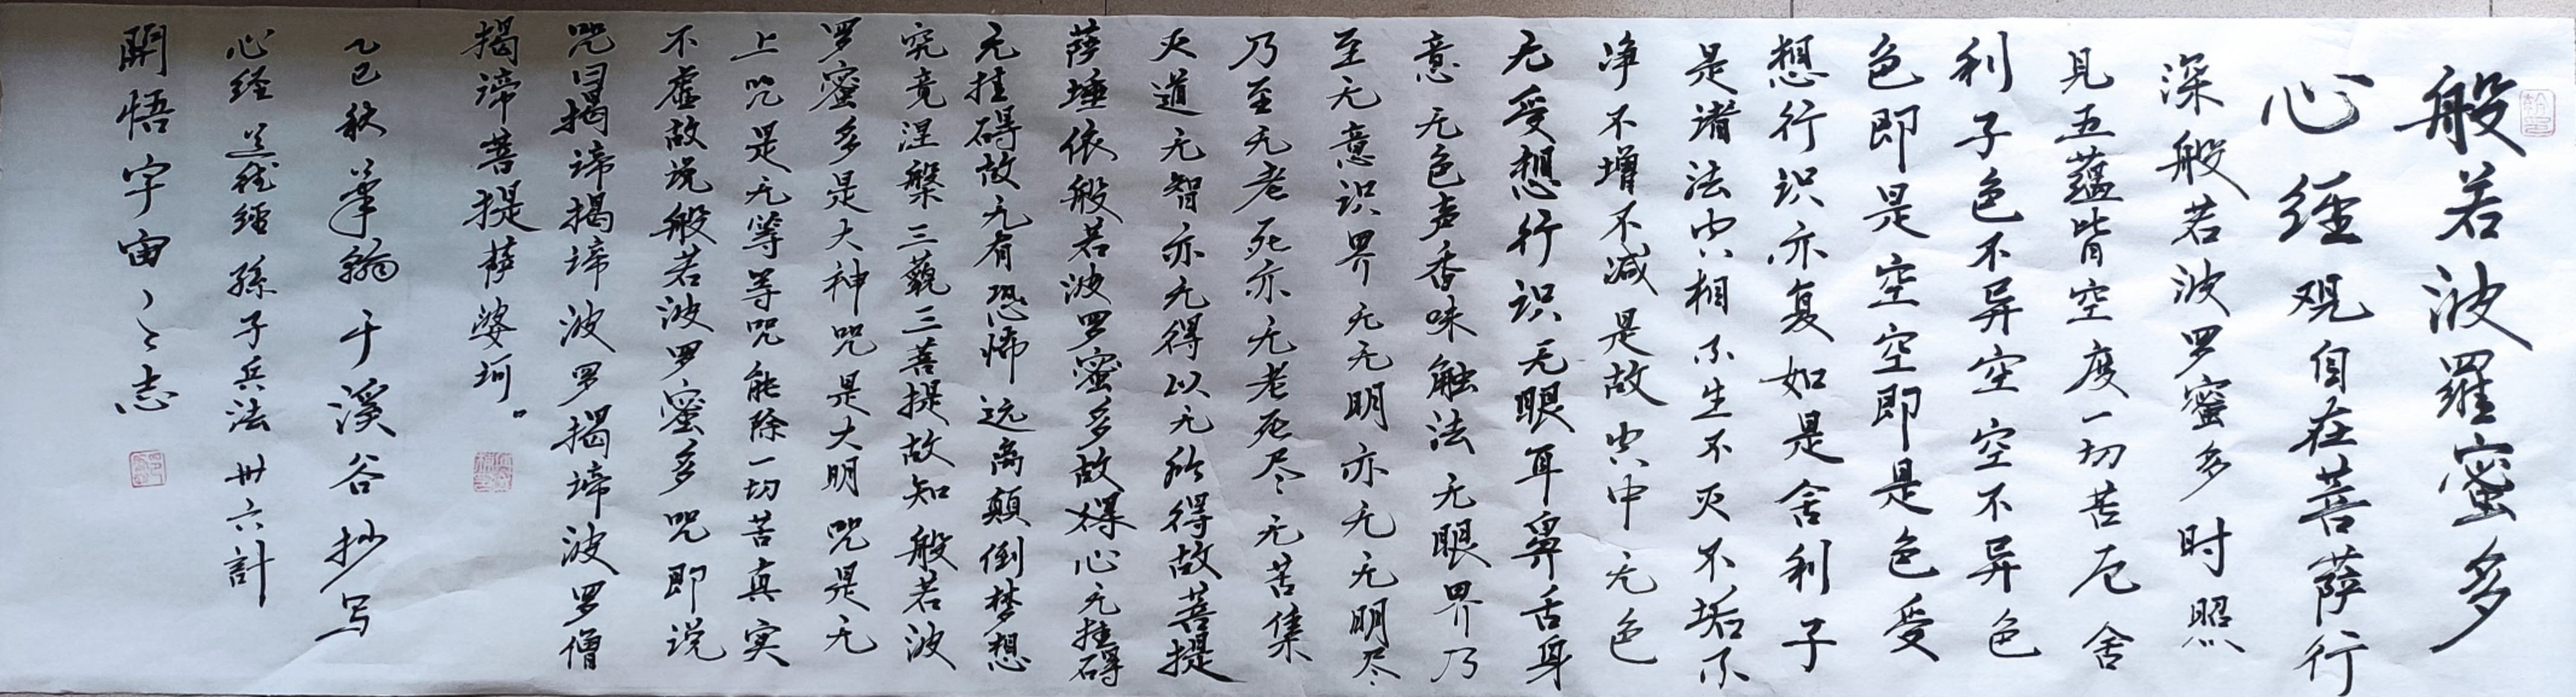 般若波羅蜜多
心経观自在菩萨行
深般若波罗蜜多时照
见五蕴皆空度一切苦厄舍
利子色不异空空不异色
色即是空空即是色受
想行识亦复如是舍利子
是诸法空相不生不灭不垢不
净不增不减是故空中无色
无受想行识无眼耳鼻舌身
意无色声香味触法无眼界乃
至无意识界无无明亦无无明尽
乃至无老死亦无老死尽无苦集
灭道无智亦无得以无所得故菩提
萨埵依般若波罗蜜多故得心无挂碍
无挂碍故无有恐怖远离颠倒梦想
究竟涅槃三藐三菩提故知般若波
罗蜜多是大神咒是大明咒是无
上咒是无等等咒能除一切苦真实
不虚故说般若波罗蜜多咒即说
咒曰揭谛揭谛波罗揭谛波罗僧
揭谛菩提萨婆坷。
乙巳秋筆翰于溪谷抄写
心经 道德經 孫子兵法 卅六計
開悟宇宙之志